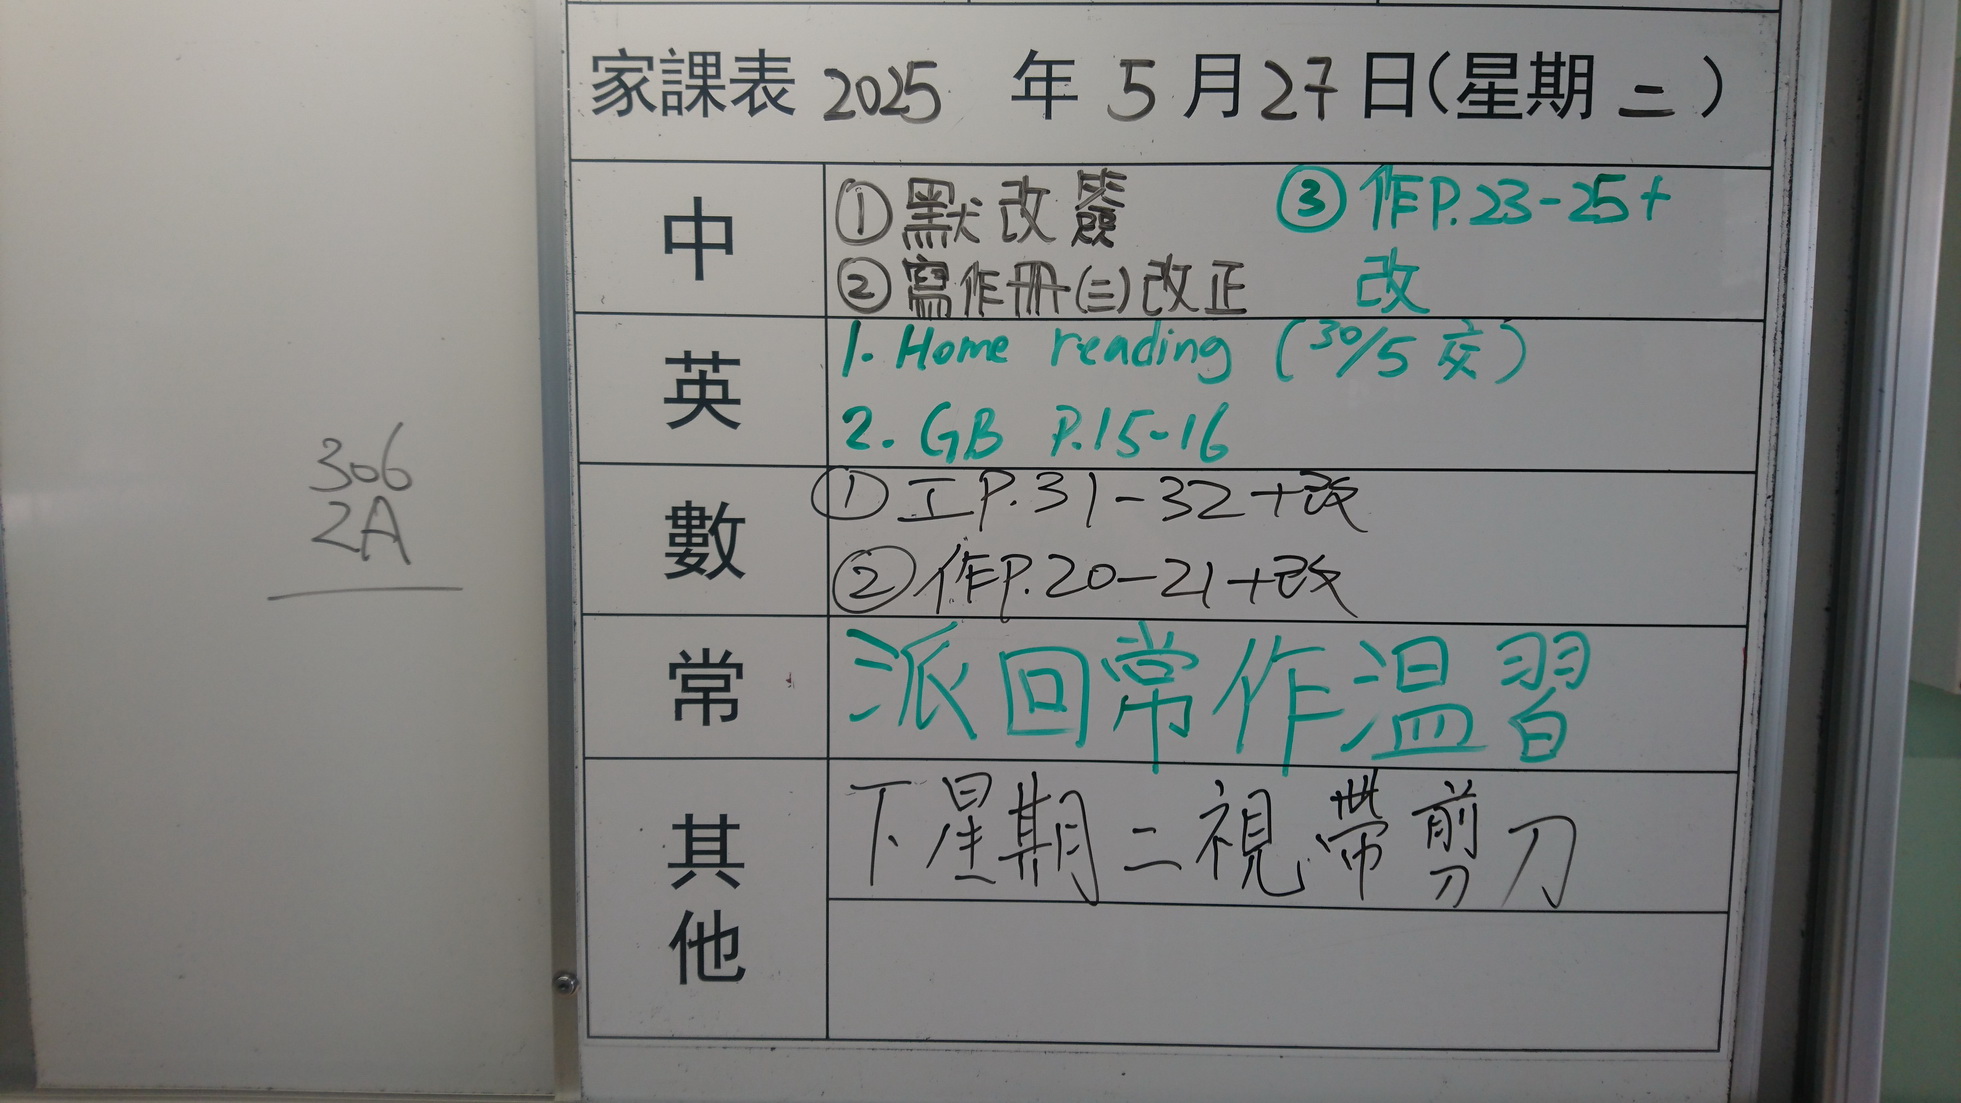 家課表 2025 年 5 月 27 日(星期 二)
中
①默改簽
②寫作冊(三)改正
③作P.23-25+
改
英
1. Home reading (30/5 交)
2. GB P.15-16
數
①工P.31-32+改
②作P.20-21+改
常
派回常作温習
其他
下星期二視帶剪刀
306
2A